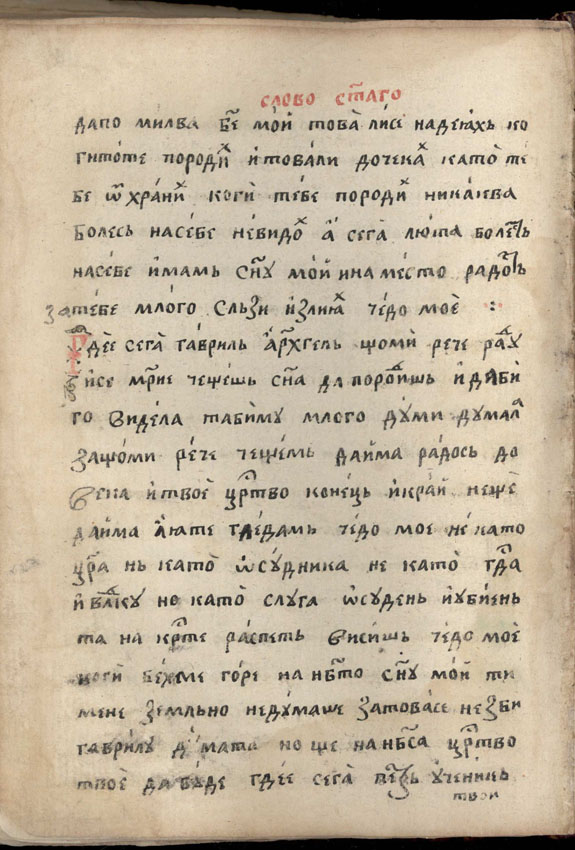 слово ст҃аго
дапо милва бж҃е мои това лисе надеꙗхъ ко
гитоте породих и товали дочеках като те
бе ѡхраних коги тебе породих никаква
болесь насебе невидох а сега люта болесть
насебе имамь сн҃у мои инаместо радость
затебе млого сльзи излиꙗх чедо мое
где́е сега гавриль арх҃гель щоми рече рад҃у
исе мр҃ие чещешь сн҃а да породишь
го видела та многого думи думала
защоми рече чещемь даима радось до
века и твое цр҃тво конець икраи неще
даима а юте гледамь чедо мое не като
цр҃а нь като ѡсудника не като гд҃а
и влд҃ку но като слуга ѡсудень иубиень
та на крт҃е распеть висишь чедо мое
коги бехме горе на нб҃то сн҃у мои ти
мене земльно недумаше затовасе незби
гаврилу думата но ще на нбс҃а цр҃тво
твое да буде где́е сега ученикь
твои